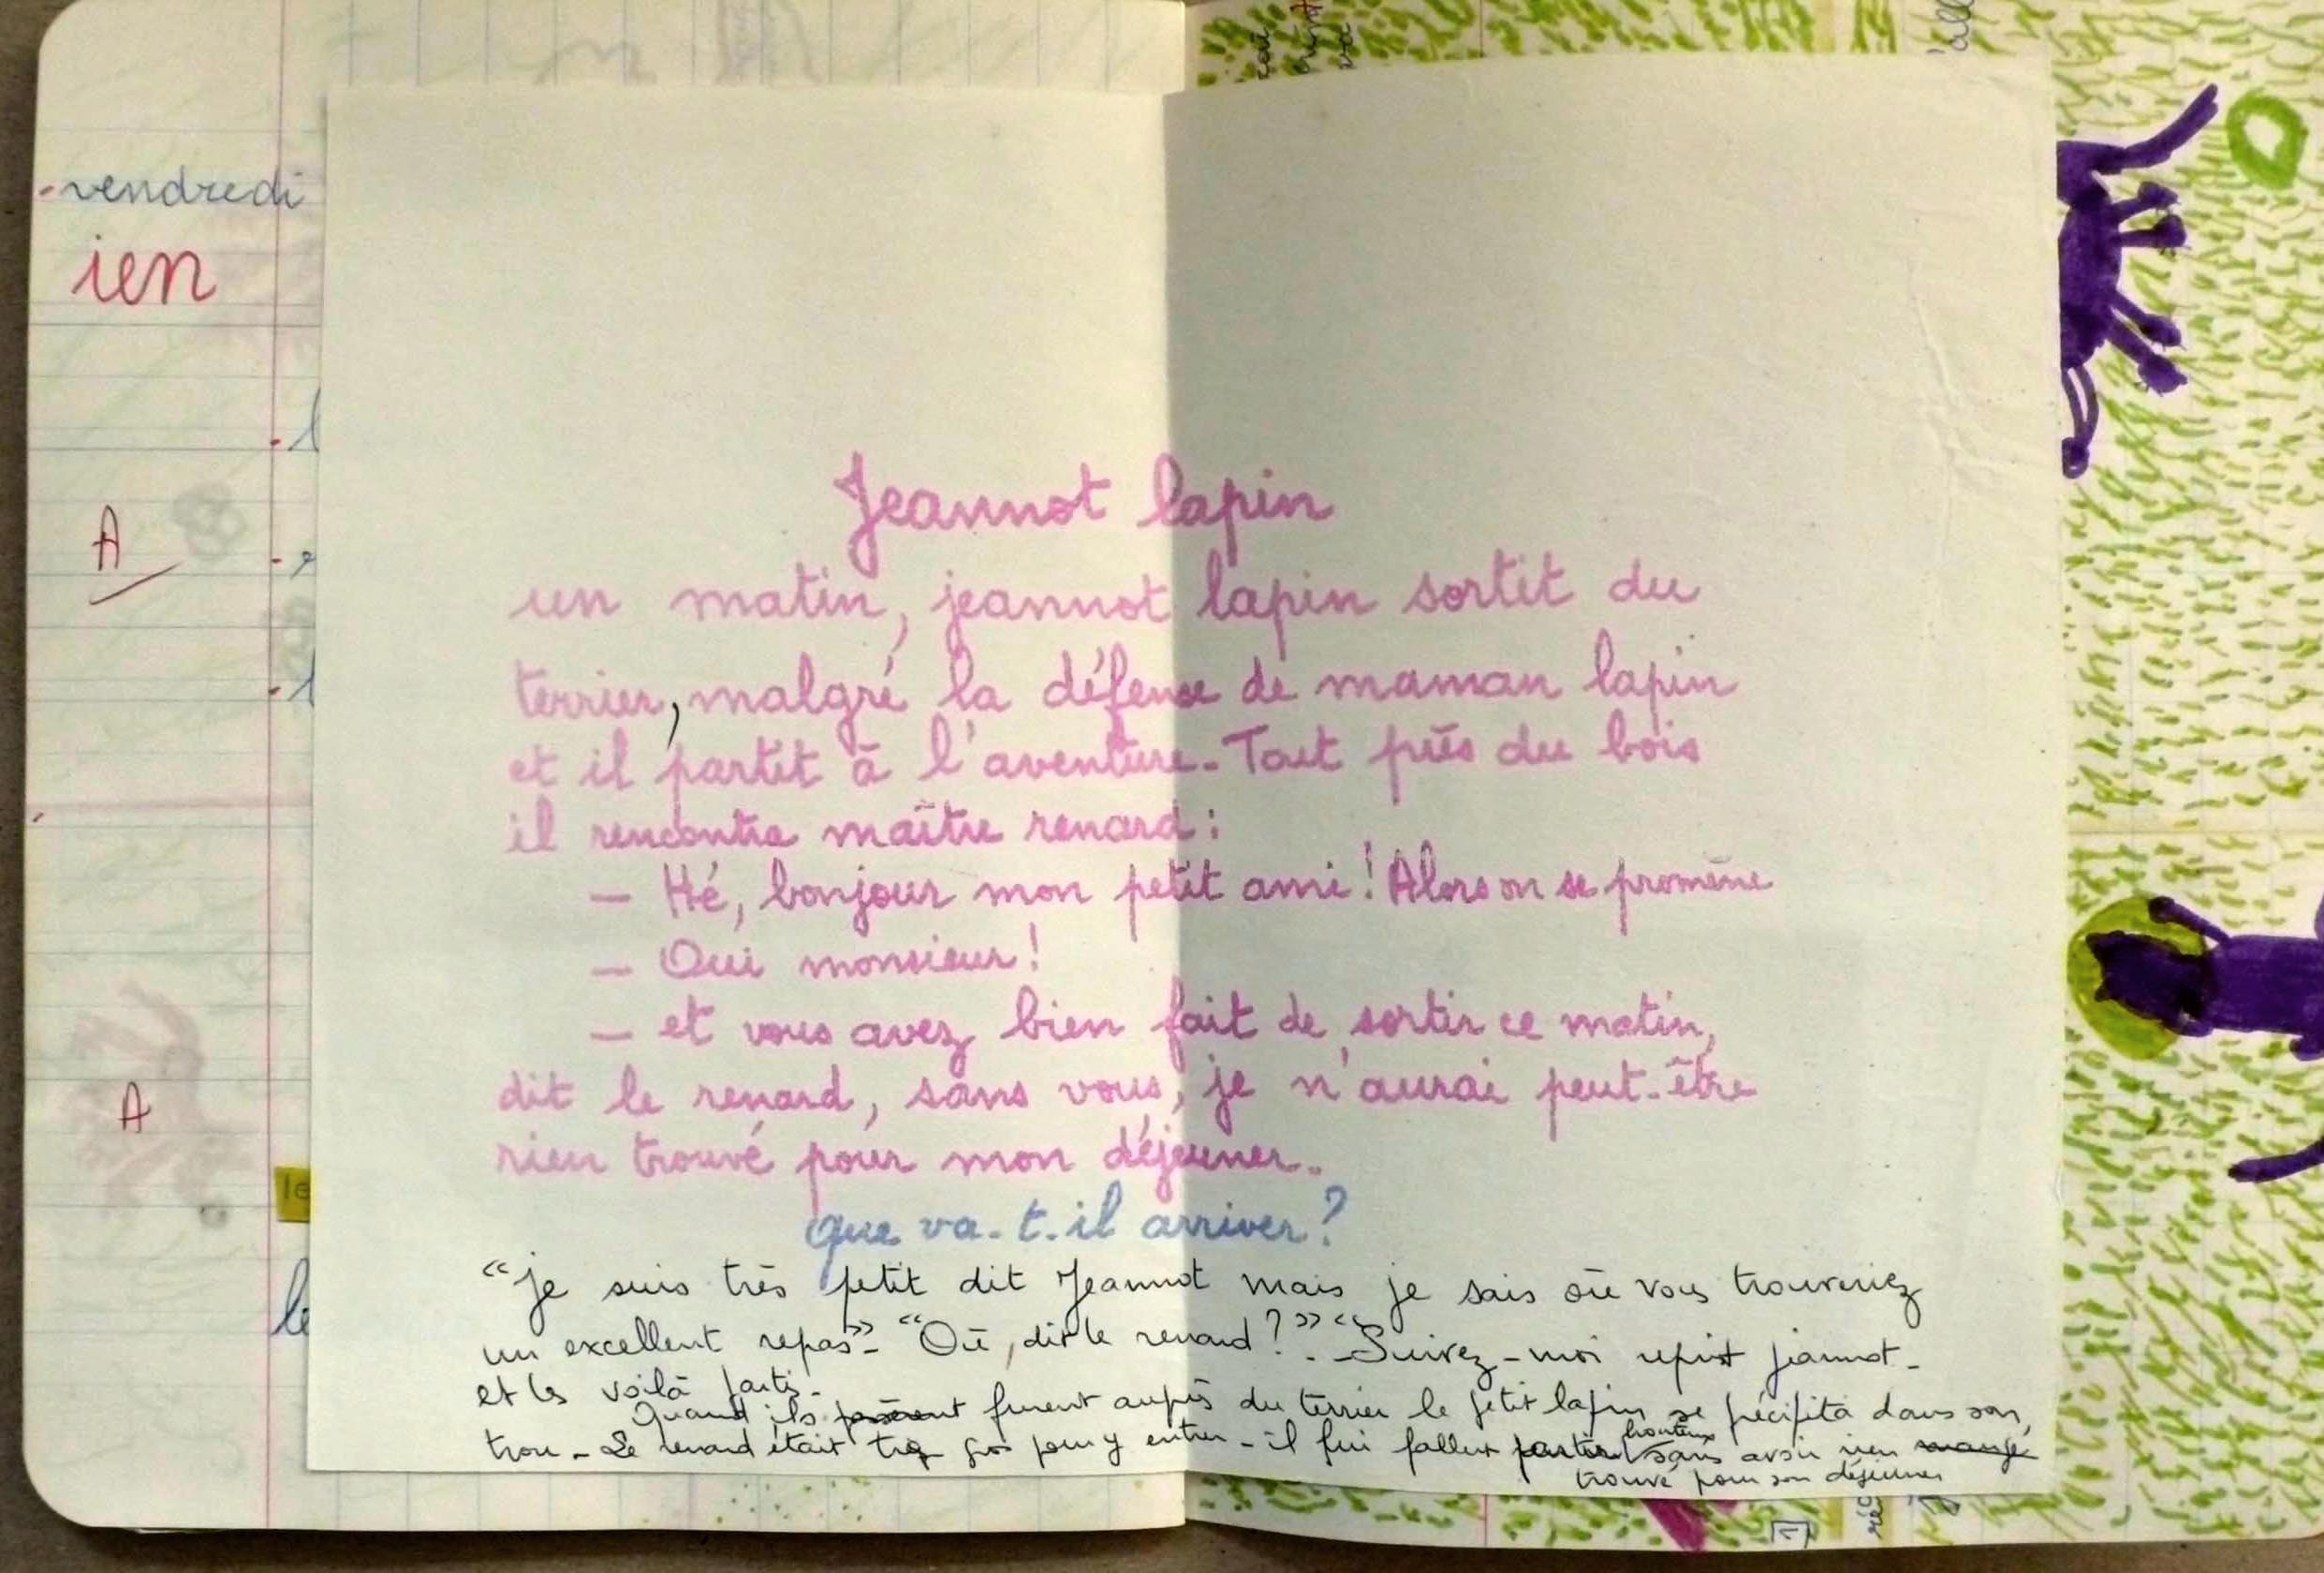 vendredi
ien
A
A
le
Jeannot lapin
un matin, jeannot lapin sortit du
terrier, malgré la défense de maman lapin
et il partit à l'aventure. Tout près du bois
il rencontra maître renard :
— Hé, bonjour mon petit ami ! Alors on se promène
— Oui monsieur !
— et vous avez bien fait de sortir ce matin,
dit le renard, sans vous, je n'aurai peut-être
rien trouvé pour mon déjeuner.
que va-t-il arriver ?
"je suis très petit dit Jeannot mais je sais où vous trouveriez
un excellent repas". "Où, dit le renard ?". "Suivez-moi reprit jeannot.
et les voilà partis.
Quand ils furent auprès du terrier le petit lapin se précipita dans son
trou. Le renard était trop gros pour y entrer. il lui fallut partir honteux sans avoir rien mangé
trouvé pour son déjeuner